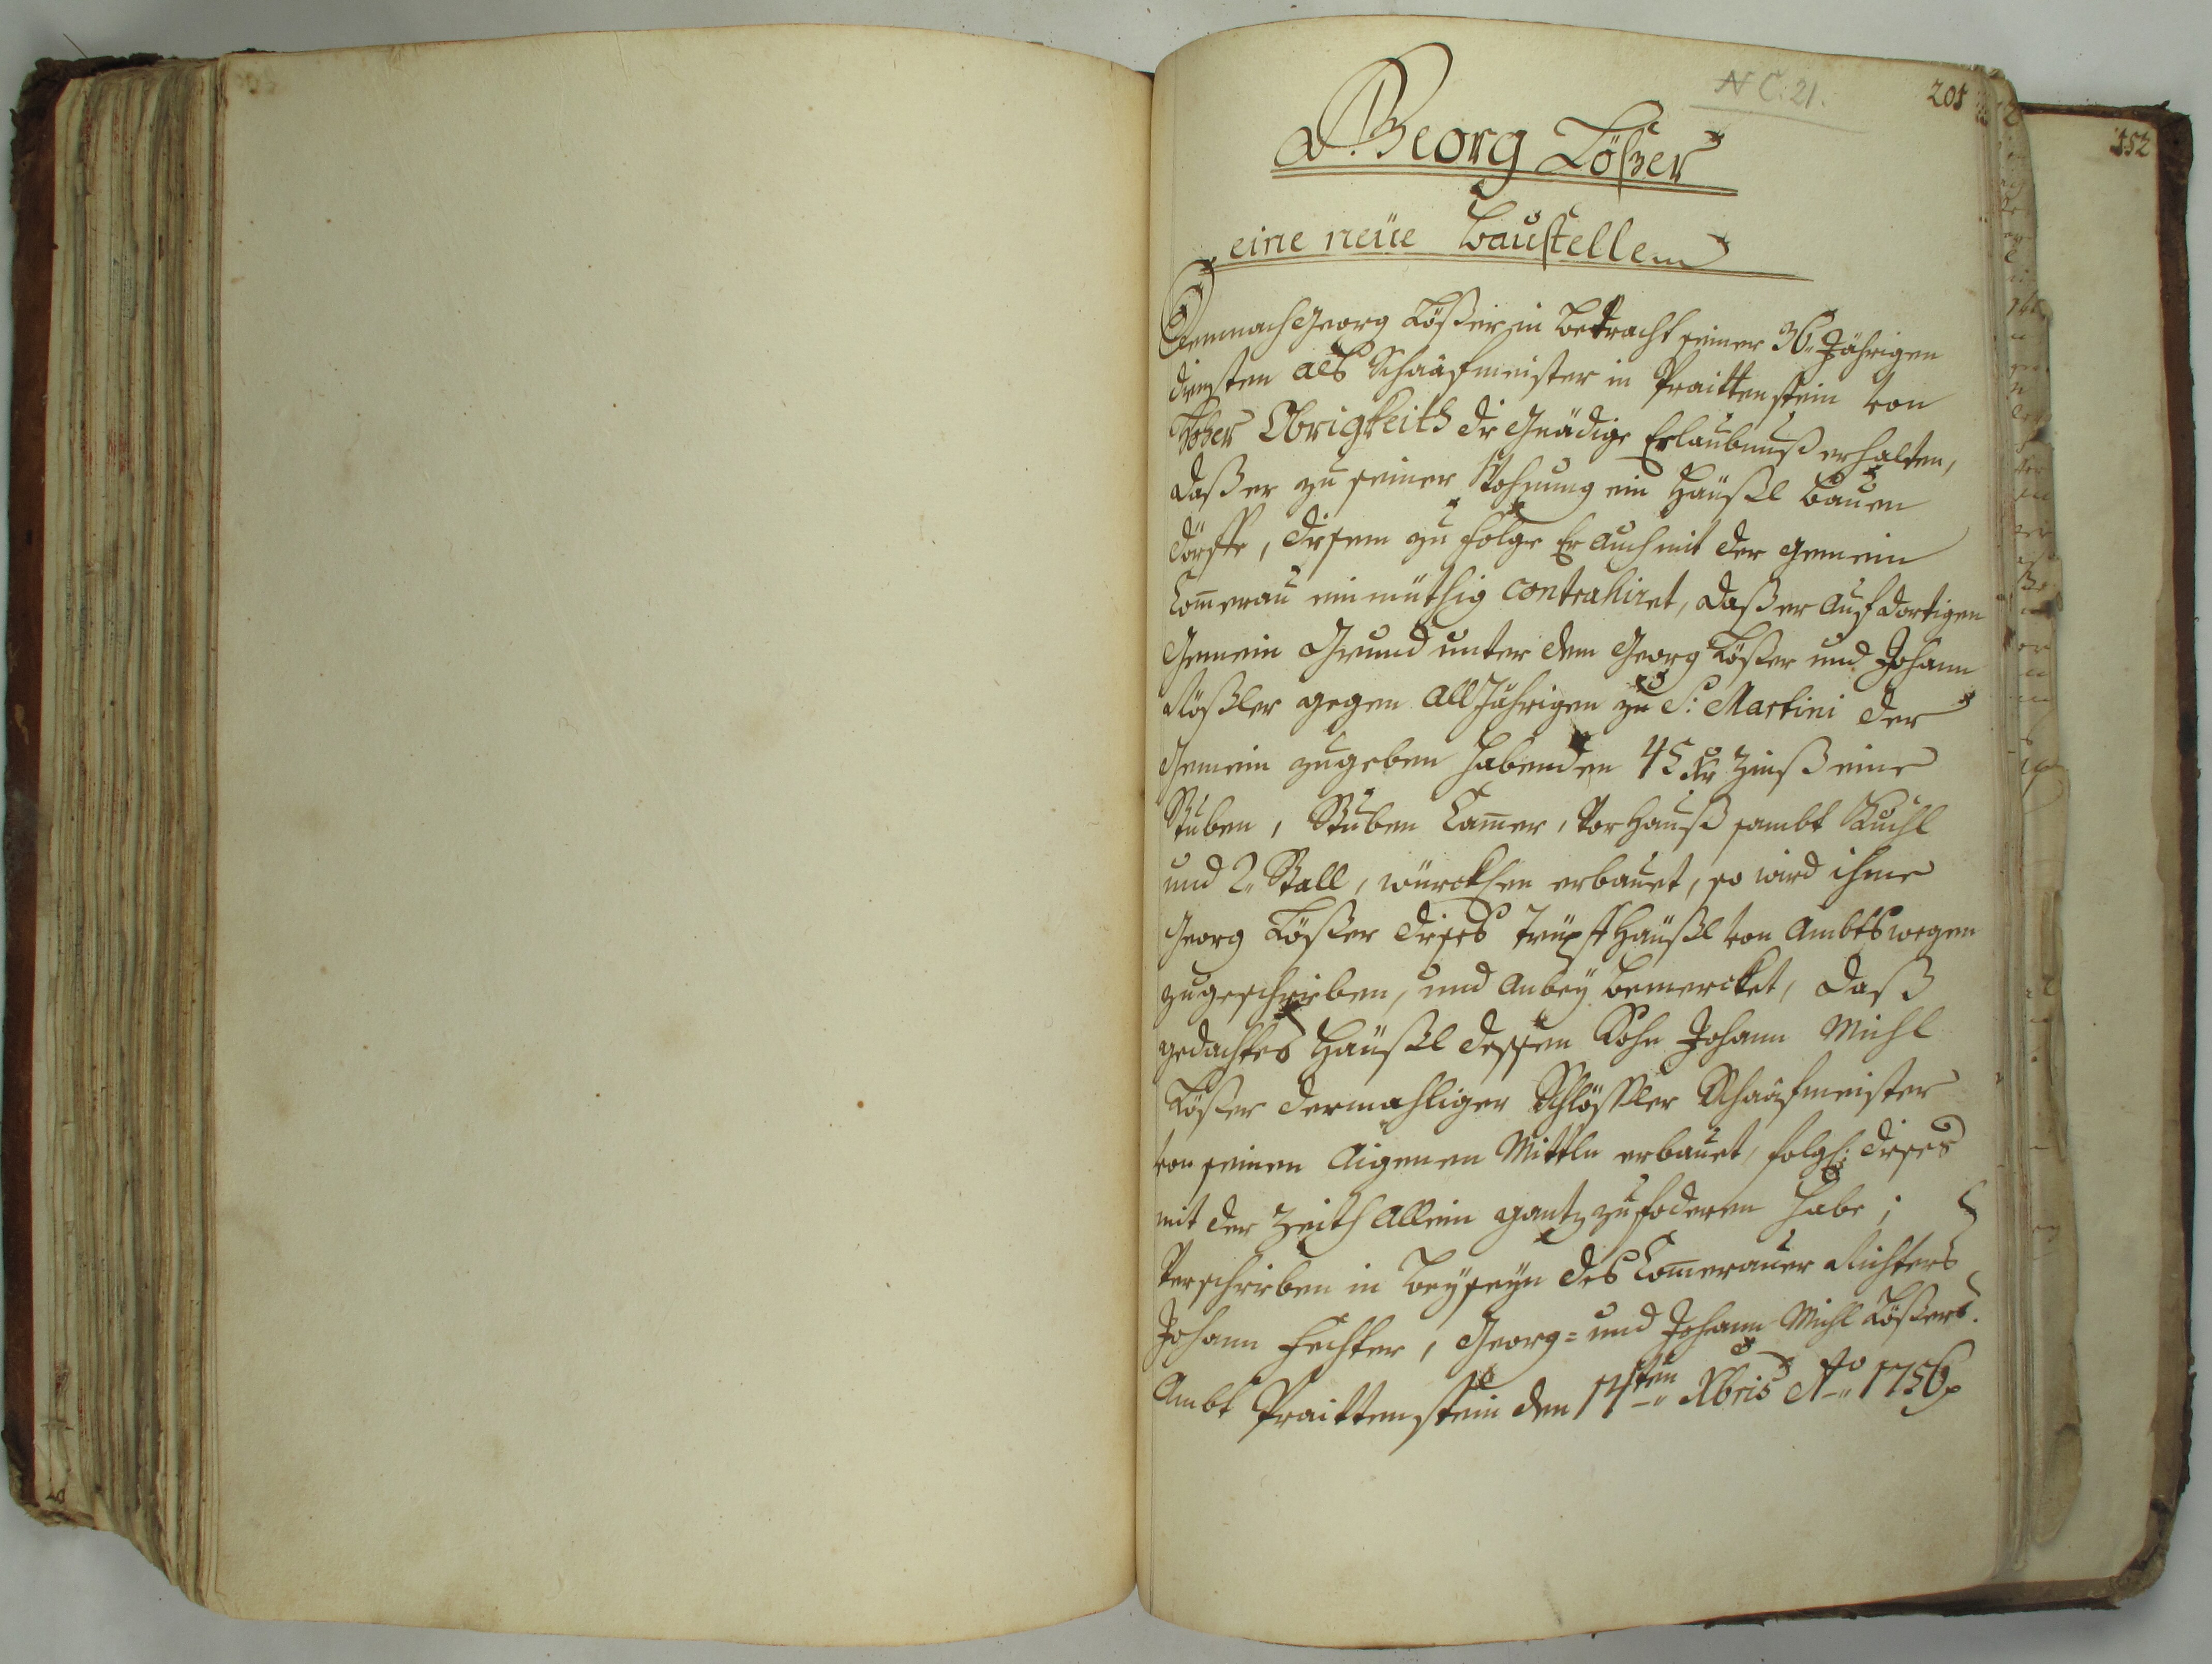 N C. 21.
201
152
Georg Lößer
eine neüe Baustellen
Demnach Georg Lößer in betracht seiner 36. Jährigen
diensten als Schaafmeister in Praittenstein von
Hoher Obrigkeith die Gnädige Erlaubnuß erhalten,
daß er zu seiner Wohnung ein Häußl bauen
dörffe, diesem zu folge Er auch mit der gemein
Comerau einmüthig contrahiret, daß er auf dortigen
Gemein Grund unter dem Georg Lößer und Johann
Rößler gegen all Jährigen zu S: Martini der
Gemein zugeben habenden 45 Kr Zinß eine
Stuben, Stuben Camer, Vorhauß sambt Kuchl
und 2. Stall, erbauet, so wird ihme
Georg Lößer dieses Häußl von Ambts wegen
zugeschrieben, und anbey bemercket, daß
gedachtes Häußl dessen Sohn Johann Michl
Lößer dermahliger Schlößler Schaafmeister
von seinen aigenen Mittln erbauet, folgl: dieses
mit der Zeith allein gantz zufodern habe;
Verschrieben in beyseyn des Comerauer Richters
Johann Fechter, Georg= und Johann Michl Lößers.
Ambt Praittenstein den 14ten Xbris Ao 1756